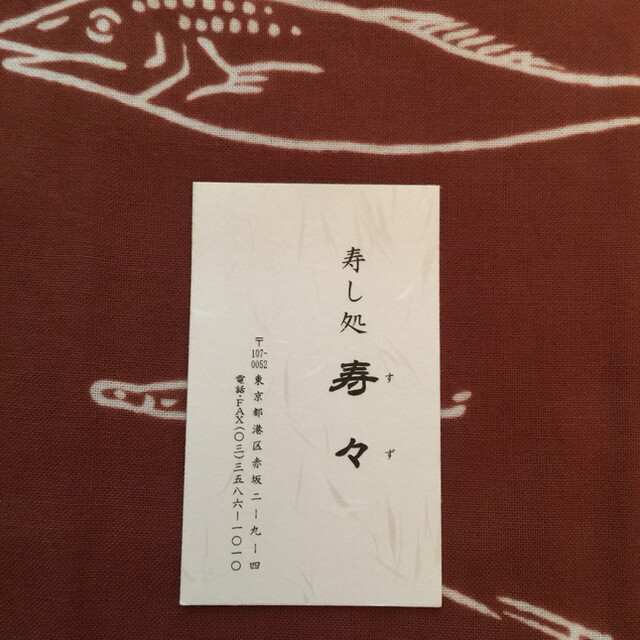 寿し処 寿々
すず
〒107-0052 東京都港区赤坂二ー九ー四
電話・FAX(〇三)三五八六ー一〇一〇